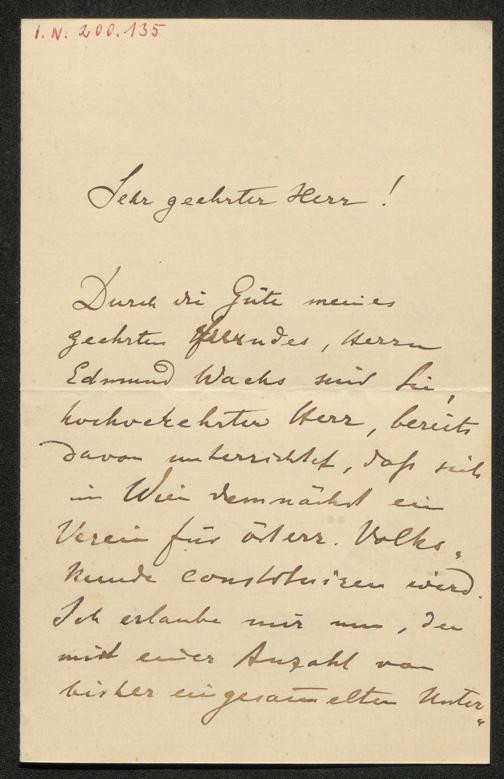 I. N. 200.135
Sehr geehrter Herr!
Durch die Güte meines
geehrten Freundes, Herrn
Edmund Wachs sind Sie,
hochverehrter Herr, bereits
davon unterrichtet, daß sich
in Wien demnächst ein
Verein für österr. Volks„
kunde constituiren wird.
Ich erlaube mir nun, den
mit einer Anzahl von
bisher eingesammelten Unter„